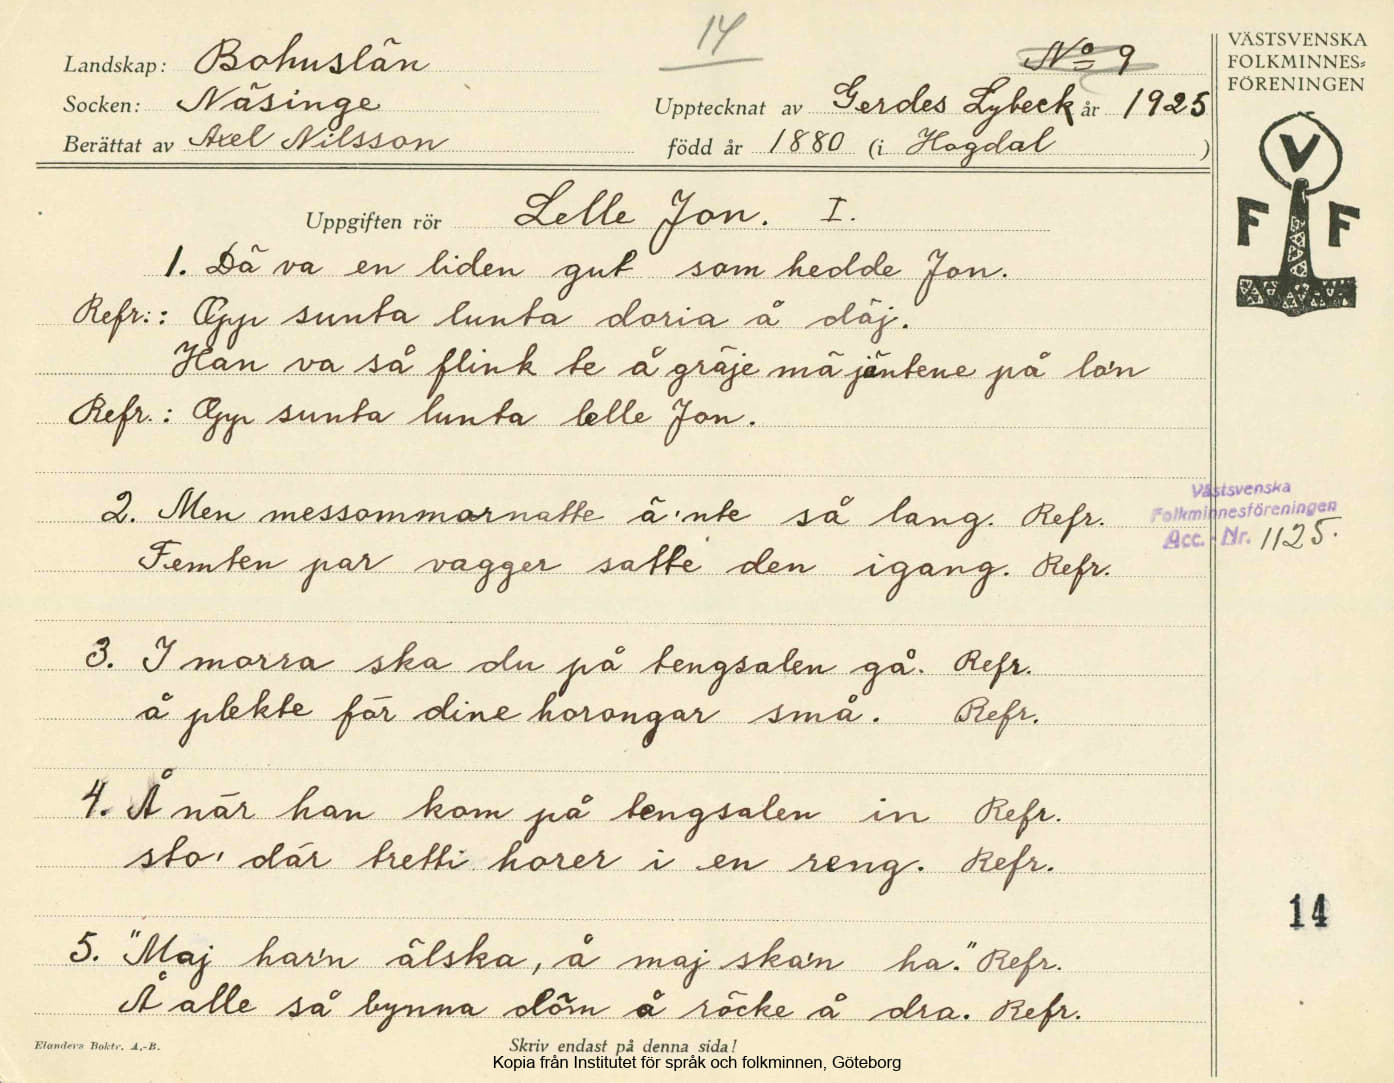 14
Landskap: Bohuslän
No 9
VÄSTSVENSKA
FOLKMINNES=
FÖRENINGEN
Socken: Näsinge
Upptecknat av Gerdes Lybeck år 1925
Berättat av Axel Nilsson
född år 1880 (i Hogdal )
V
F F
Uppgiften rör Lelle Jon. I.
1. Dä va en liden gut som hedde Jon.
Refr.: Opp sunta lunta doria å däj.
Han va så flink te å gräje mä jäntene på lo'n
Refr.: Opp sunta lunta lelle Jon.
2. Men messommarnatte ä'nte så lang. Refr.
Femten par vagger satte den igang. Refr.
Västsvenska
Folkminnesföreningen
Acc. Nr. 1125.
3. I morra ska du på tengsalen gå. Refr.
å plekte för dine horongar små. Refr.
4. Å när han kom på tengsalen in Refr.
sto' där tretti horer i en reng. Refr.
14
5. "Maj har'n älska, å maj ska'n ha." Refr.
Å alle så bynna döm å röcke å dra. Refr.
Elanders Boktr. A.-B.
Skriv endast på denna sida!
Kopia från Institutet för språk och folkminnen, Göteborg